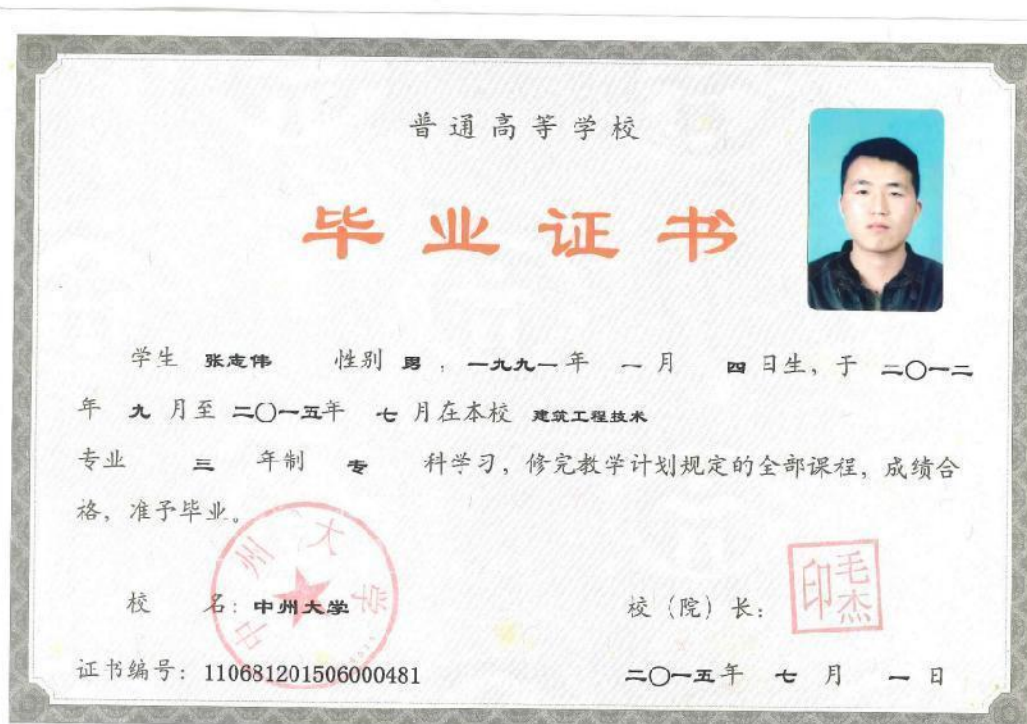 普通高等学校
毕业证书
学生 张志伟 性别 男 ，一九九一年 一月 四日生，于 二〇一二
年 九 月至 二〇一五年 七 月在本校 建筑工程技术
专业 三 年制 专 科学习，修完教学计划规定的全部课程，成绩合
格，准予毕业。
中州大学
校 名：中州大学
校（院）长：
毛杰印
证书编号：110681201506000481
二〇一五年 七 月 一 日